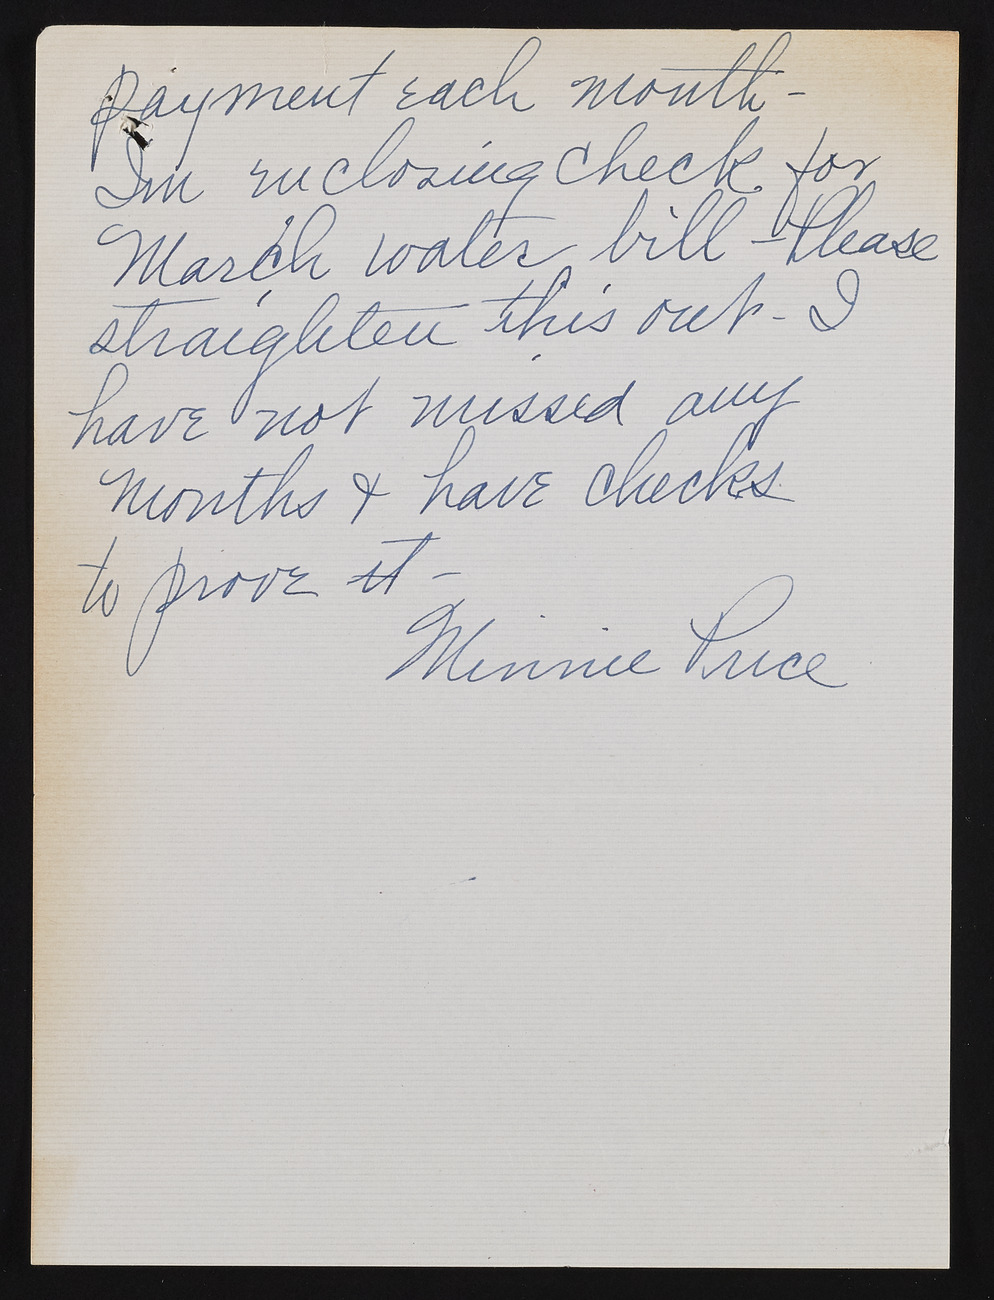 payment each month -
I'm enclosing check for
March water bill - Please
straighten this out - I
have not missed any
months & have checks
to prove it -
Minnie Price